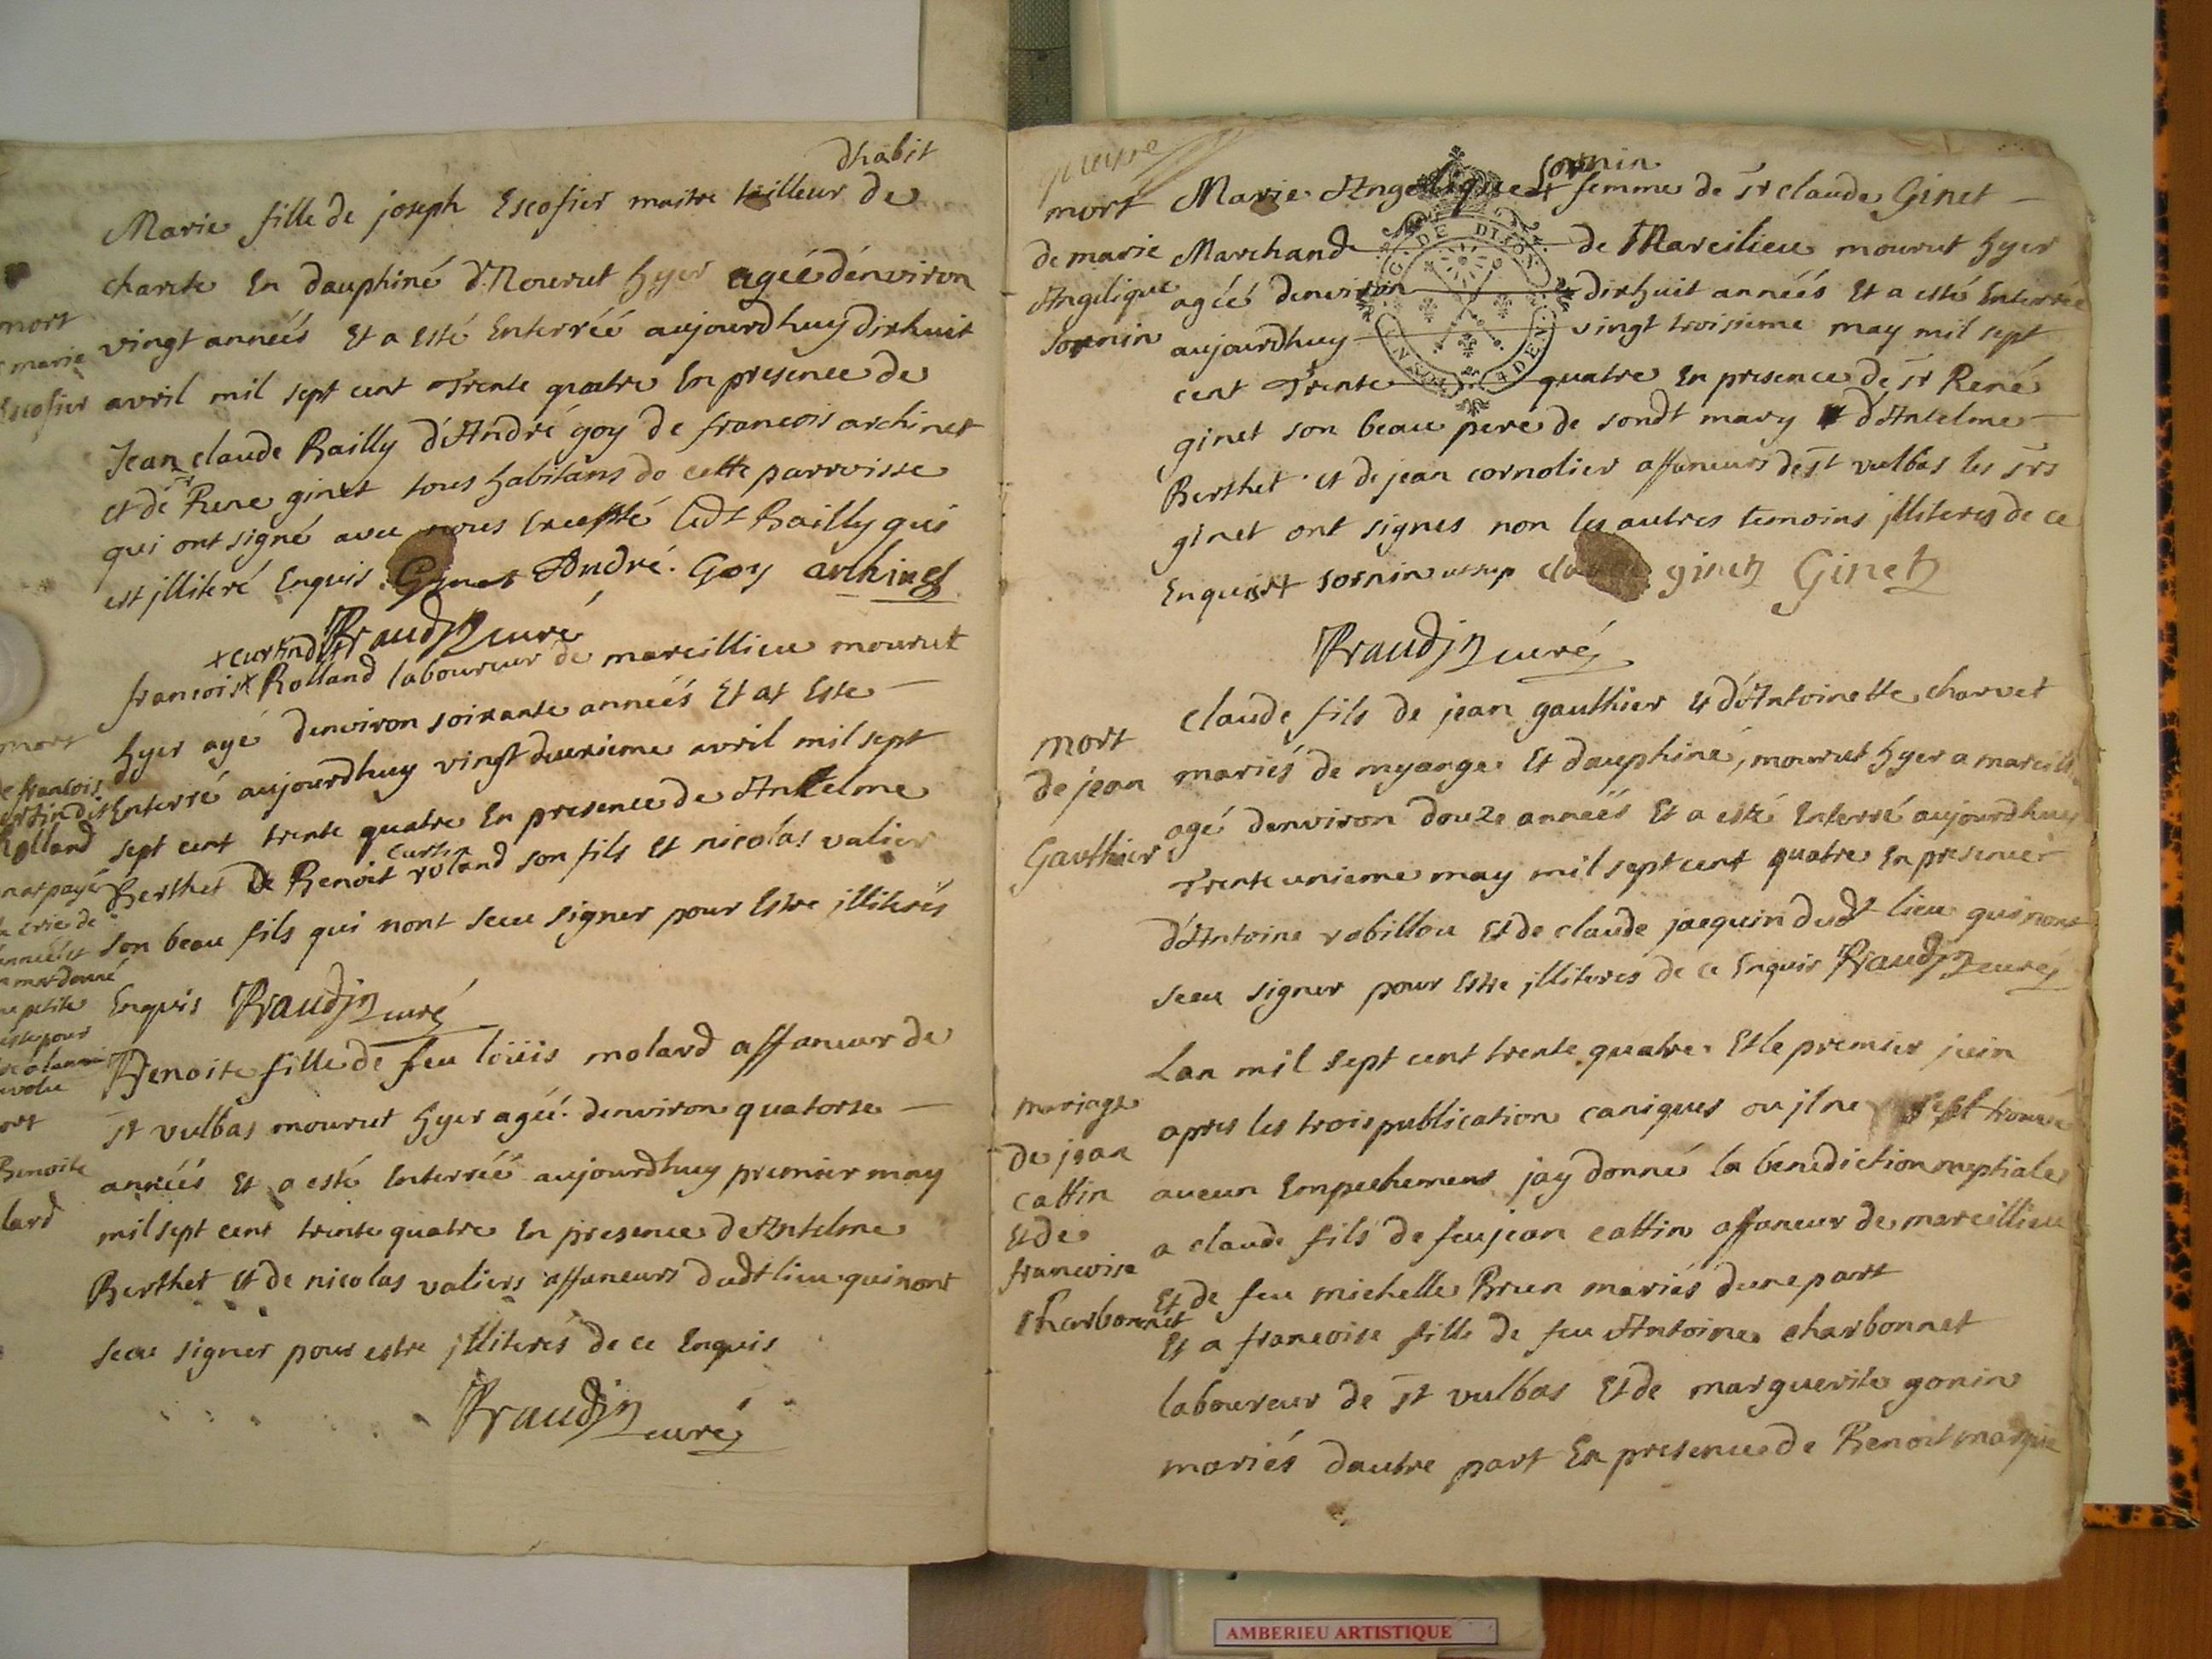 dhabit
Marie fille de joseph Escofier maitre tailleur de
charete En dauphiné Mourut hyer agéé denviron
vingt annéés Et a esté Enterréé aujourdhuy dixhuit
avril mil sept cent Trente quatre En presence de
Jean claude Bailly d'André goy de francois archinet
et de sr Rene ginet tous habitans de cette parroisse
qui ont signé avec nous Excepté ledt Bailly qui
est jlliteré Enquis. Gynet André. Goy archinet
Praudin curé
mort
marie
Escofier
+ curtin dit
francois + Rolland laboureur de marcillieu mourut
hyer agé denviron soixante annéés Et at Este
Enterré aujourdhuy vingt deuxieme avril mil sept
sept cent trente quatre En presence de Antelme
curtin
Berthet De Benoit roland son fils Et nicolas valier
son beau fils qui nont sceu signer pour Estre jlliterés
Enquis Praudin curé
mort
de francois
curtin dit
Rolland
nat payé
Benoite fille de feu loüis molard affaneur de
st vulbas mourut hyer agéé denviron quatorse
annéés Et a esté Enterréé aujourdhuy premier may
mil sept cent trente quatre En presence de Antelme
Berthet Et de nicolas valiers affaneurs dudt lieu qui nont
sceu signer pour estre jlliterés de ce Enquis
Praudin curé
ort
Benoite
lard
sornin
Marie Angelique + femme de sr claude Ginet
Marchand de Marcilieu mourut hyer
agéé denviron dixhuit annéés Et a esté Enterréé
aujourdhuy vingt troisieme may mil sept
cent Trente quatre En presence de sr René
ginet son beau pere de sondt mary d'Antelme
Berthet et de jean cornolier affaneurs de st vulbas les srs
ginet ont signes non les autres temoins jlliteres de ce
Enquis + sornin ut sup claude ginet Ginet
Praudin curé
mort
de marie
Angelique
sornin
DE DIJON
claude fils de jean gauthier Et d'Antoinette charvet
mariés de myange Et dauphiné, mourut hyer a marcill
agé denviron douze annéés Et a esté Enterré aujourdhuy
Trente unieme may mil sept cent quatre En presence
d'Antoine robillou Et de claude jacquin dudt lieu qui nont
sceu signer pour Estre jlliteres de ce Enquis Praudin curé
mort
de jean
Gauthier
Lan mil sept cent trente quatre Et le premier juin
apres les trois publication caniques ou jl ne sest trouvé
aucun Empechemens jay donné la benediction nuptiale
a claude fils de feu jean cattin affaneur de marcillieu
Et de feu michelle Brun mariés dune part
Et a francoise fille de feu Antoine charbonnet
laboureur de st vulbas Et de marguerite gonin
mariés dautre part En presence de Benoit
mariage
de jean
cattin
Et de
francoise
charbonnet
AMBERIEU ARTISTIQUE